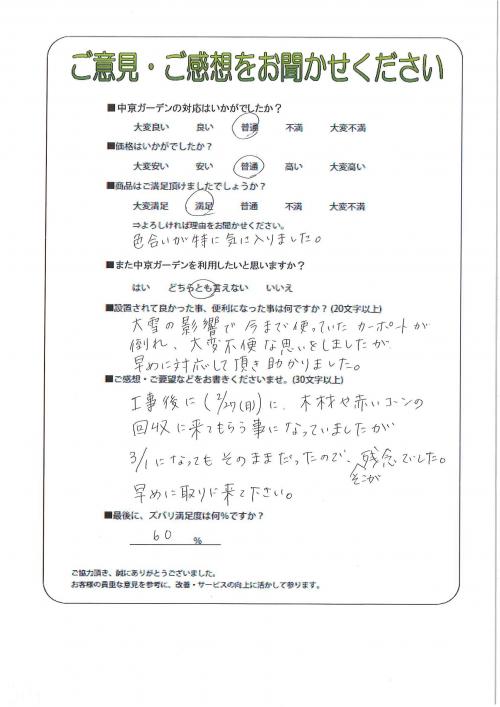 ご意見・ご感想をお聞かせください
■中京ガーデンの対応はいかがでしたか？
大変良い 良い 普通 不満 大変不満
■価格はいかがでしたか？
大変安い 安い 普通 高い 大変高い
■商品はご満足頂けましたでしょうか？
大変満足 満足 普通 不満 大変不満
⇒よろしければ理由をお聞かせください。
色合いが特に気に入りました。
■また中京ガーデンを利用したいと思いますか？
はい どちらとも言えない いいえ
■設置されて良かった事、便利になった事は何ですか？(20文字以上)
大雪の影響で今まで使っていたカーポートが
倒れ、大変不便な思いをしましたが
早めに対応して頂き助かりました。
■ご感想・ご要望などをお書きくださいませ。(30文字以上)
工事後に(2/27(日)に、木材や赤いコーンの
回収に来てもらう事になっていましたが
3/1になってもそのままだったので、残念でした。
そこが
早めに取りに来て下さい。
■最後に、ズバリ満足度は何％ですか？
60 ％
ご協力頂き、誠にありがとうございました。
お客様の貴重な意見を参考に、改善・サービスの向上に活かして参ります。